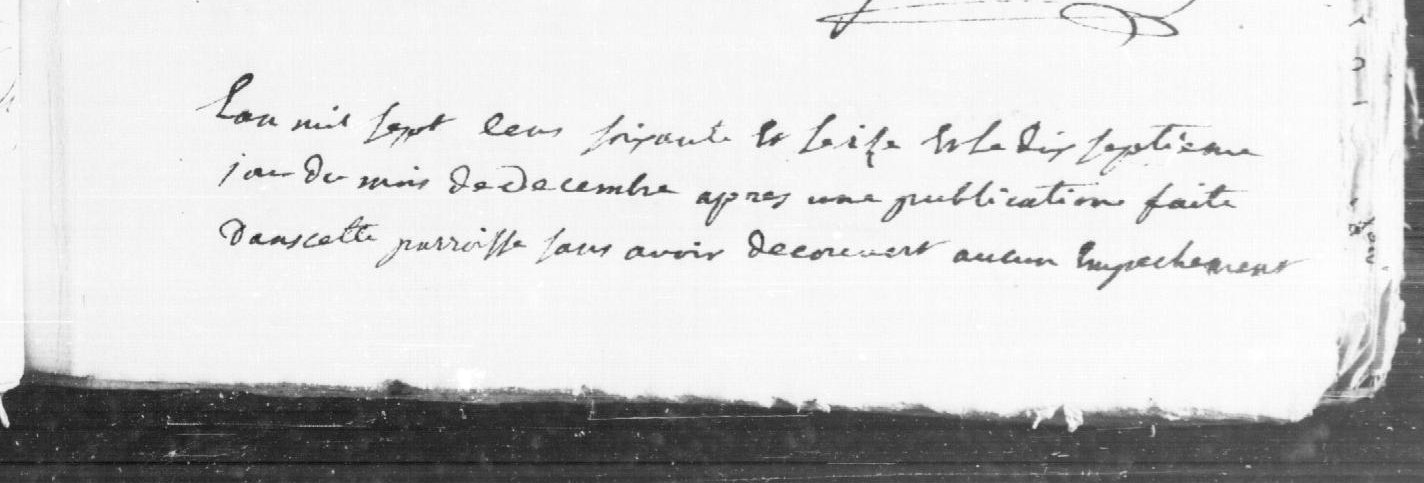 Lan mil sept cens soixante et seise et le dix septieme
jour du mois de Decembre apres une publication faite
Dans cette parroisse sans avoir decouvert aucun Empechement